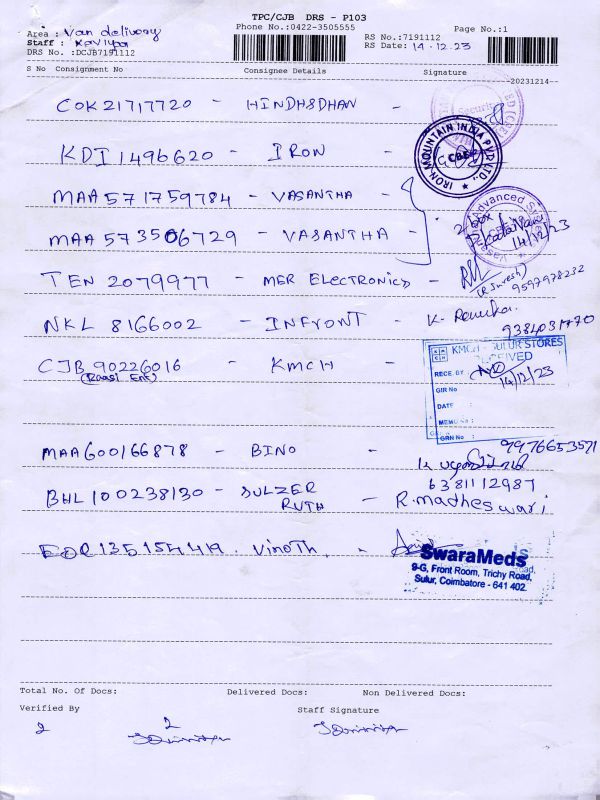 TPC/CJB DRS - P103
Phone No.:0422-3505555
Page No.:1
Area : Van delivery
Staff : Kaviya
DRS No. :DCJB7191112
RS No.:7191112
RS Date: 14.12.23
S No Consignment No Consignee Details Signature
20231214
COK21717720 - HINDHSDHAN -
KDI 1496620 - IRON -
IRON MOUNTAIN INDIA PVT. LTD.
CBE
MAA 571759784 - VASANTHA -
MAA 573506729 - VASANTHA -
Advanced
2 box
14/12/23
TEN 2079977 - MER ELECTRONICS -
(R Suresh)
9597978232
NKL 8166002 - INFYONT - K. Renuka.
9384031770
CJB 90226016 - KMCH -
(Raasi Ent)
KMCH - SULUR STORES
RECEIVED
RECE. BY
GIR No
14/12/23
DATE
MEMO No :
GRN No :
9976653571
MAA600166878 - BINO -
6381112987
BHL100238130 - SULZER RUTH - R.madheswari
EOR135154419. Vinoth. -
SwaraMeds
9-G, Front Room, Trichy Road,
Sulur, Coimbatore - 641 402.
Total No. Of Docs: Delivered Docs: Non Delivered Docs:
Verified By Staff Signature
2 2